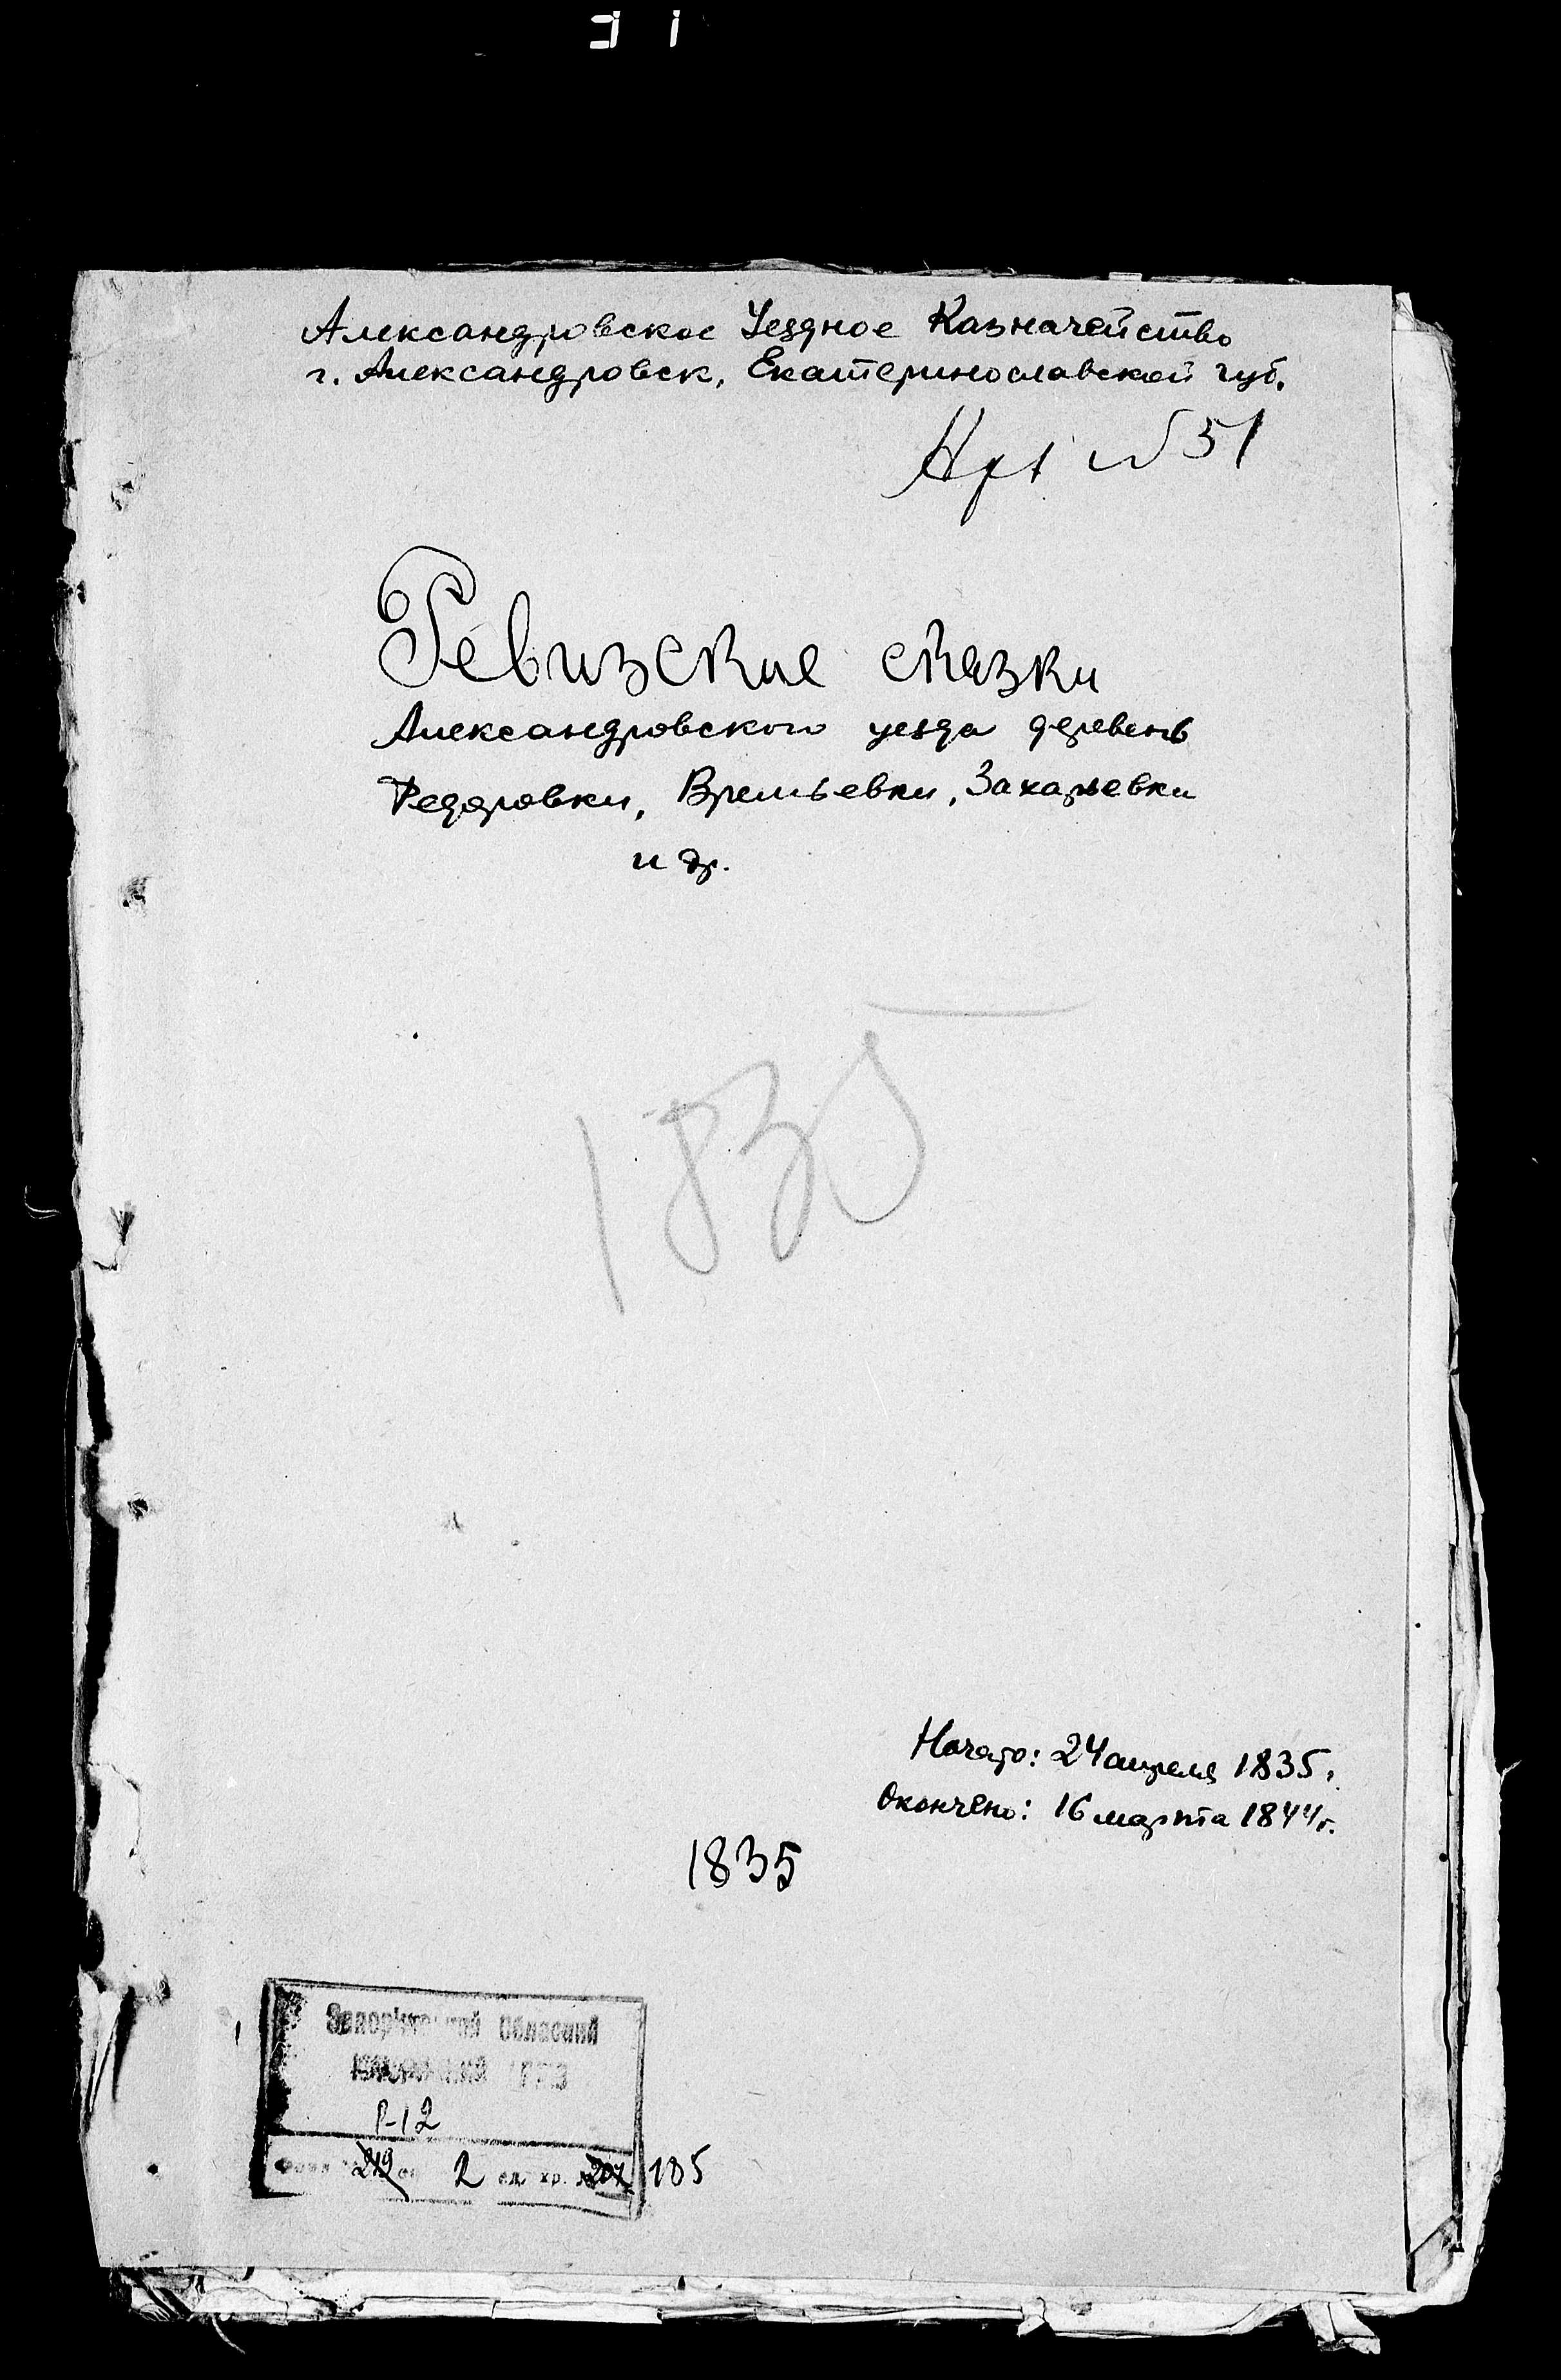 Александровское Уездное Казначейство
г. Александровск, Екатеринославской губ.
№ 51
Ревизские сказки
Александровского уезда деревень
Федоровки, Времьевки, Захарьевки
и др.
1835
Начато: 24 апреля 1835г.
Окончено: 16 марта 1844г.
1835
Обласний
Р-12
219 2 ед. хр. 207 185